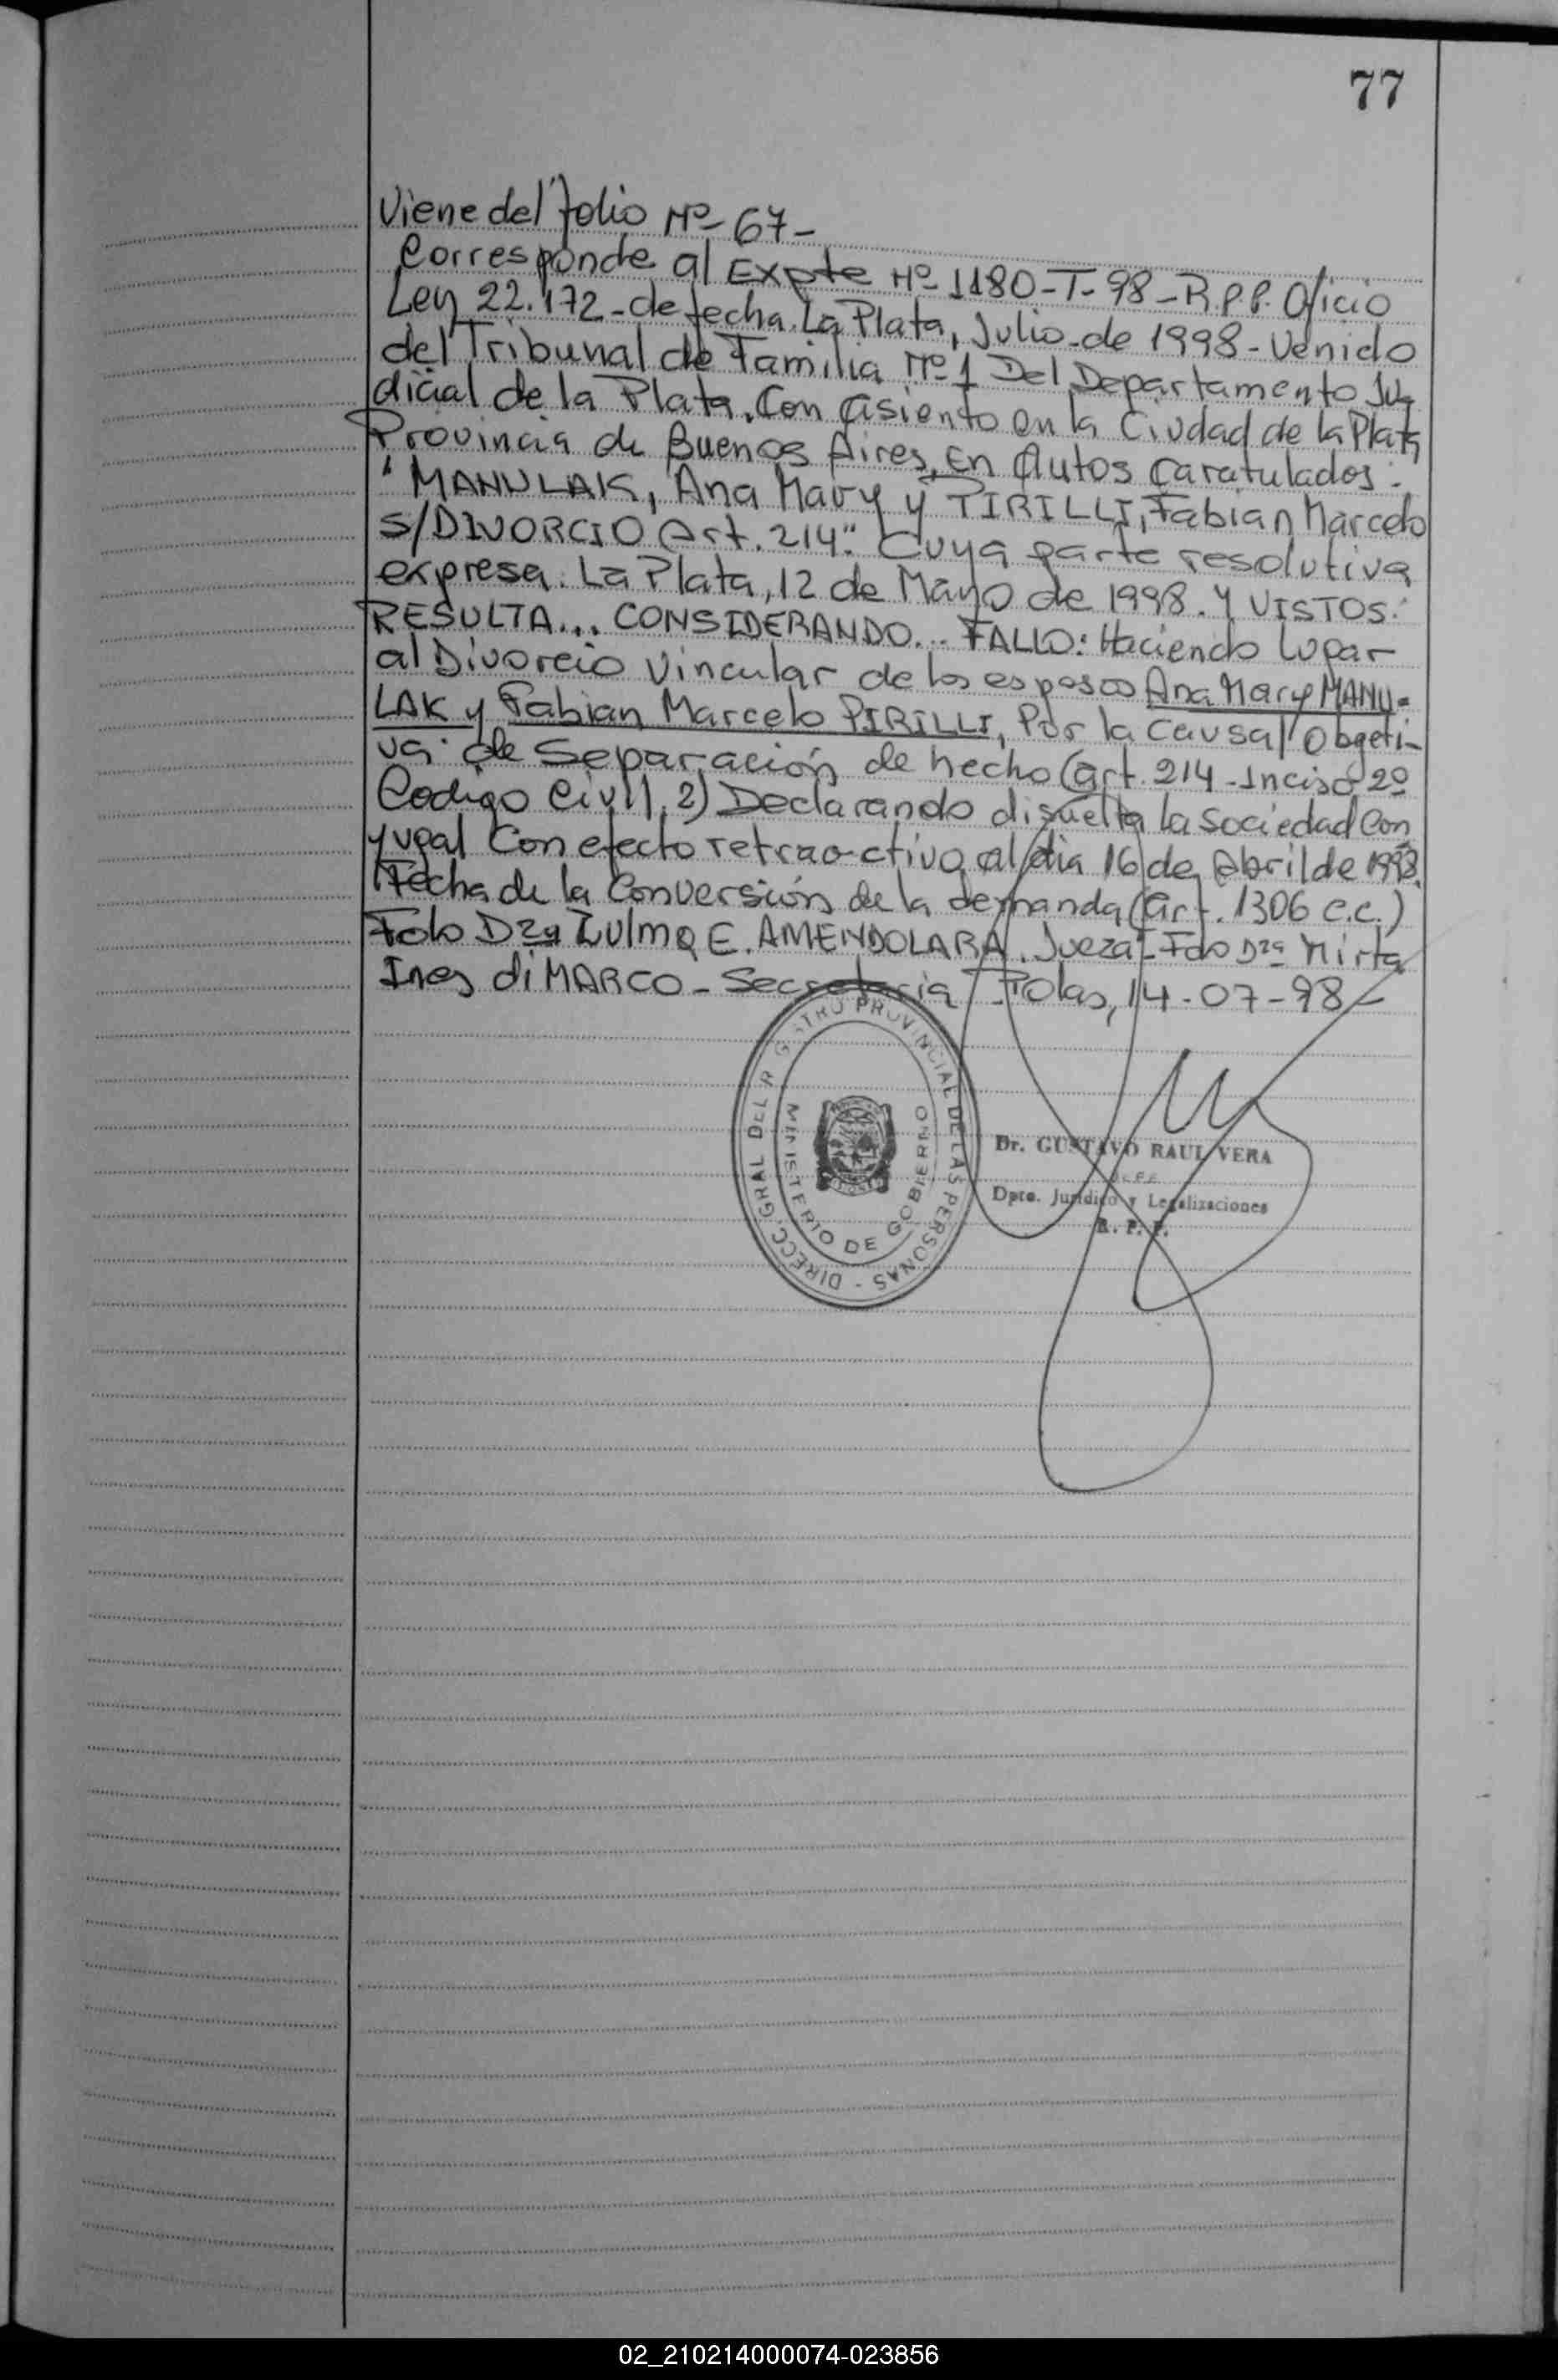 77
Viene del folio Nº 67-
Corresponde al Expte Nº 1180-T-98-R.P.P. Oficio
Ley 22.172-de fecha La Plata, Julio-de 1998-Venido
del Tribunal de Familia Nº 1 Del Departamento Ju-
dicial de la Plata. Con asiento en la Ciudad de la Plata
Provincia de Buenos Aires, En Autos Caratulados:
"MANULAK, Ana Mary y PIRILLI, Fabian Marcelo
S/DIVORCIO Art. 214." Cuya parte resolutiva
expresa: La Plata, 12 de Mayo de 1998. Y VISTOS:
RESULTA... CONSIDERANDO... FALLO: Haciendo lugar
al Divorcio Vincular de los esposos Ana Mary MANU-
LAK y Fabian Marcelo PIRILLI, Por la Causal Obgeti-
va de Separación de hecho (art. 214-Inciso 2º
Codigo Civil), 2) Declarando disuelta la Sociedad Con
yugal Con efecto retrao-ctivo al dia 16 de Abril de 1998.
Fecha de la Conversión de la demanda (art. 1306 c.c.)
Fdo Dra Zulma E. AMENDOLARA. Jueza-Fdo Dra Mirta
Ines di MARCO-Secretaria Pdas, 14-07-98-
DIRECC. GRAL DEL REGISTRO PROVINCIAL DE LAS PERSONAS -
MINISTERIO DE GOBIERNO
Dr. GUSTAVO RAUL VERA
JEFE
Dpto. Juridico y Legalizaciones
R. P. P.
02_210214000074-023856